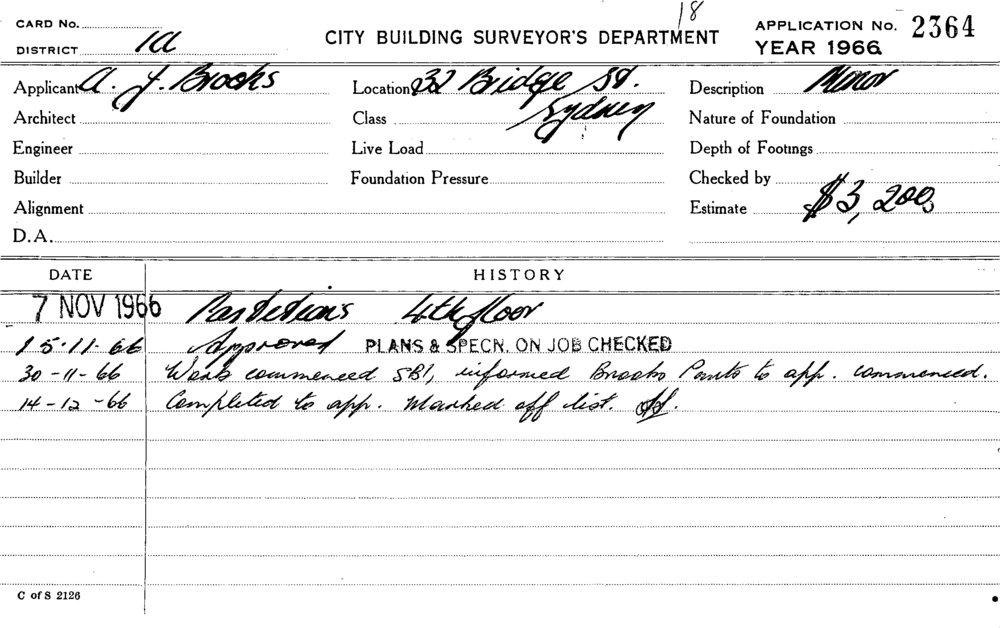 18
CARD No.
APPLICATION No. 2364
DISTRICT 1a
CITY BUILDING SURVEYOR'S DEPARTMENT
YEAR 1966
Applicant A. J. Brooks
Location 32 Bridge St.
Description Minor
Architect
Class Sydney
Nature of Foundation
Engineer
Live Load
Depth of Footings
Builder
Foundation Pressure
Checked by
Alignment
Estimate $3,200
D.A.
DATE HISTORY
7 NOV 1966 Partitions 4th floor
15.11.66 Approved PLANS & SPECN. ON JOB CHECKED
30-11-66 Work commenced SBI, informed Brooks to app. commenced.
14-12-66 Completed to app. Marked off list.
C of S 2126